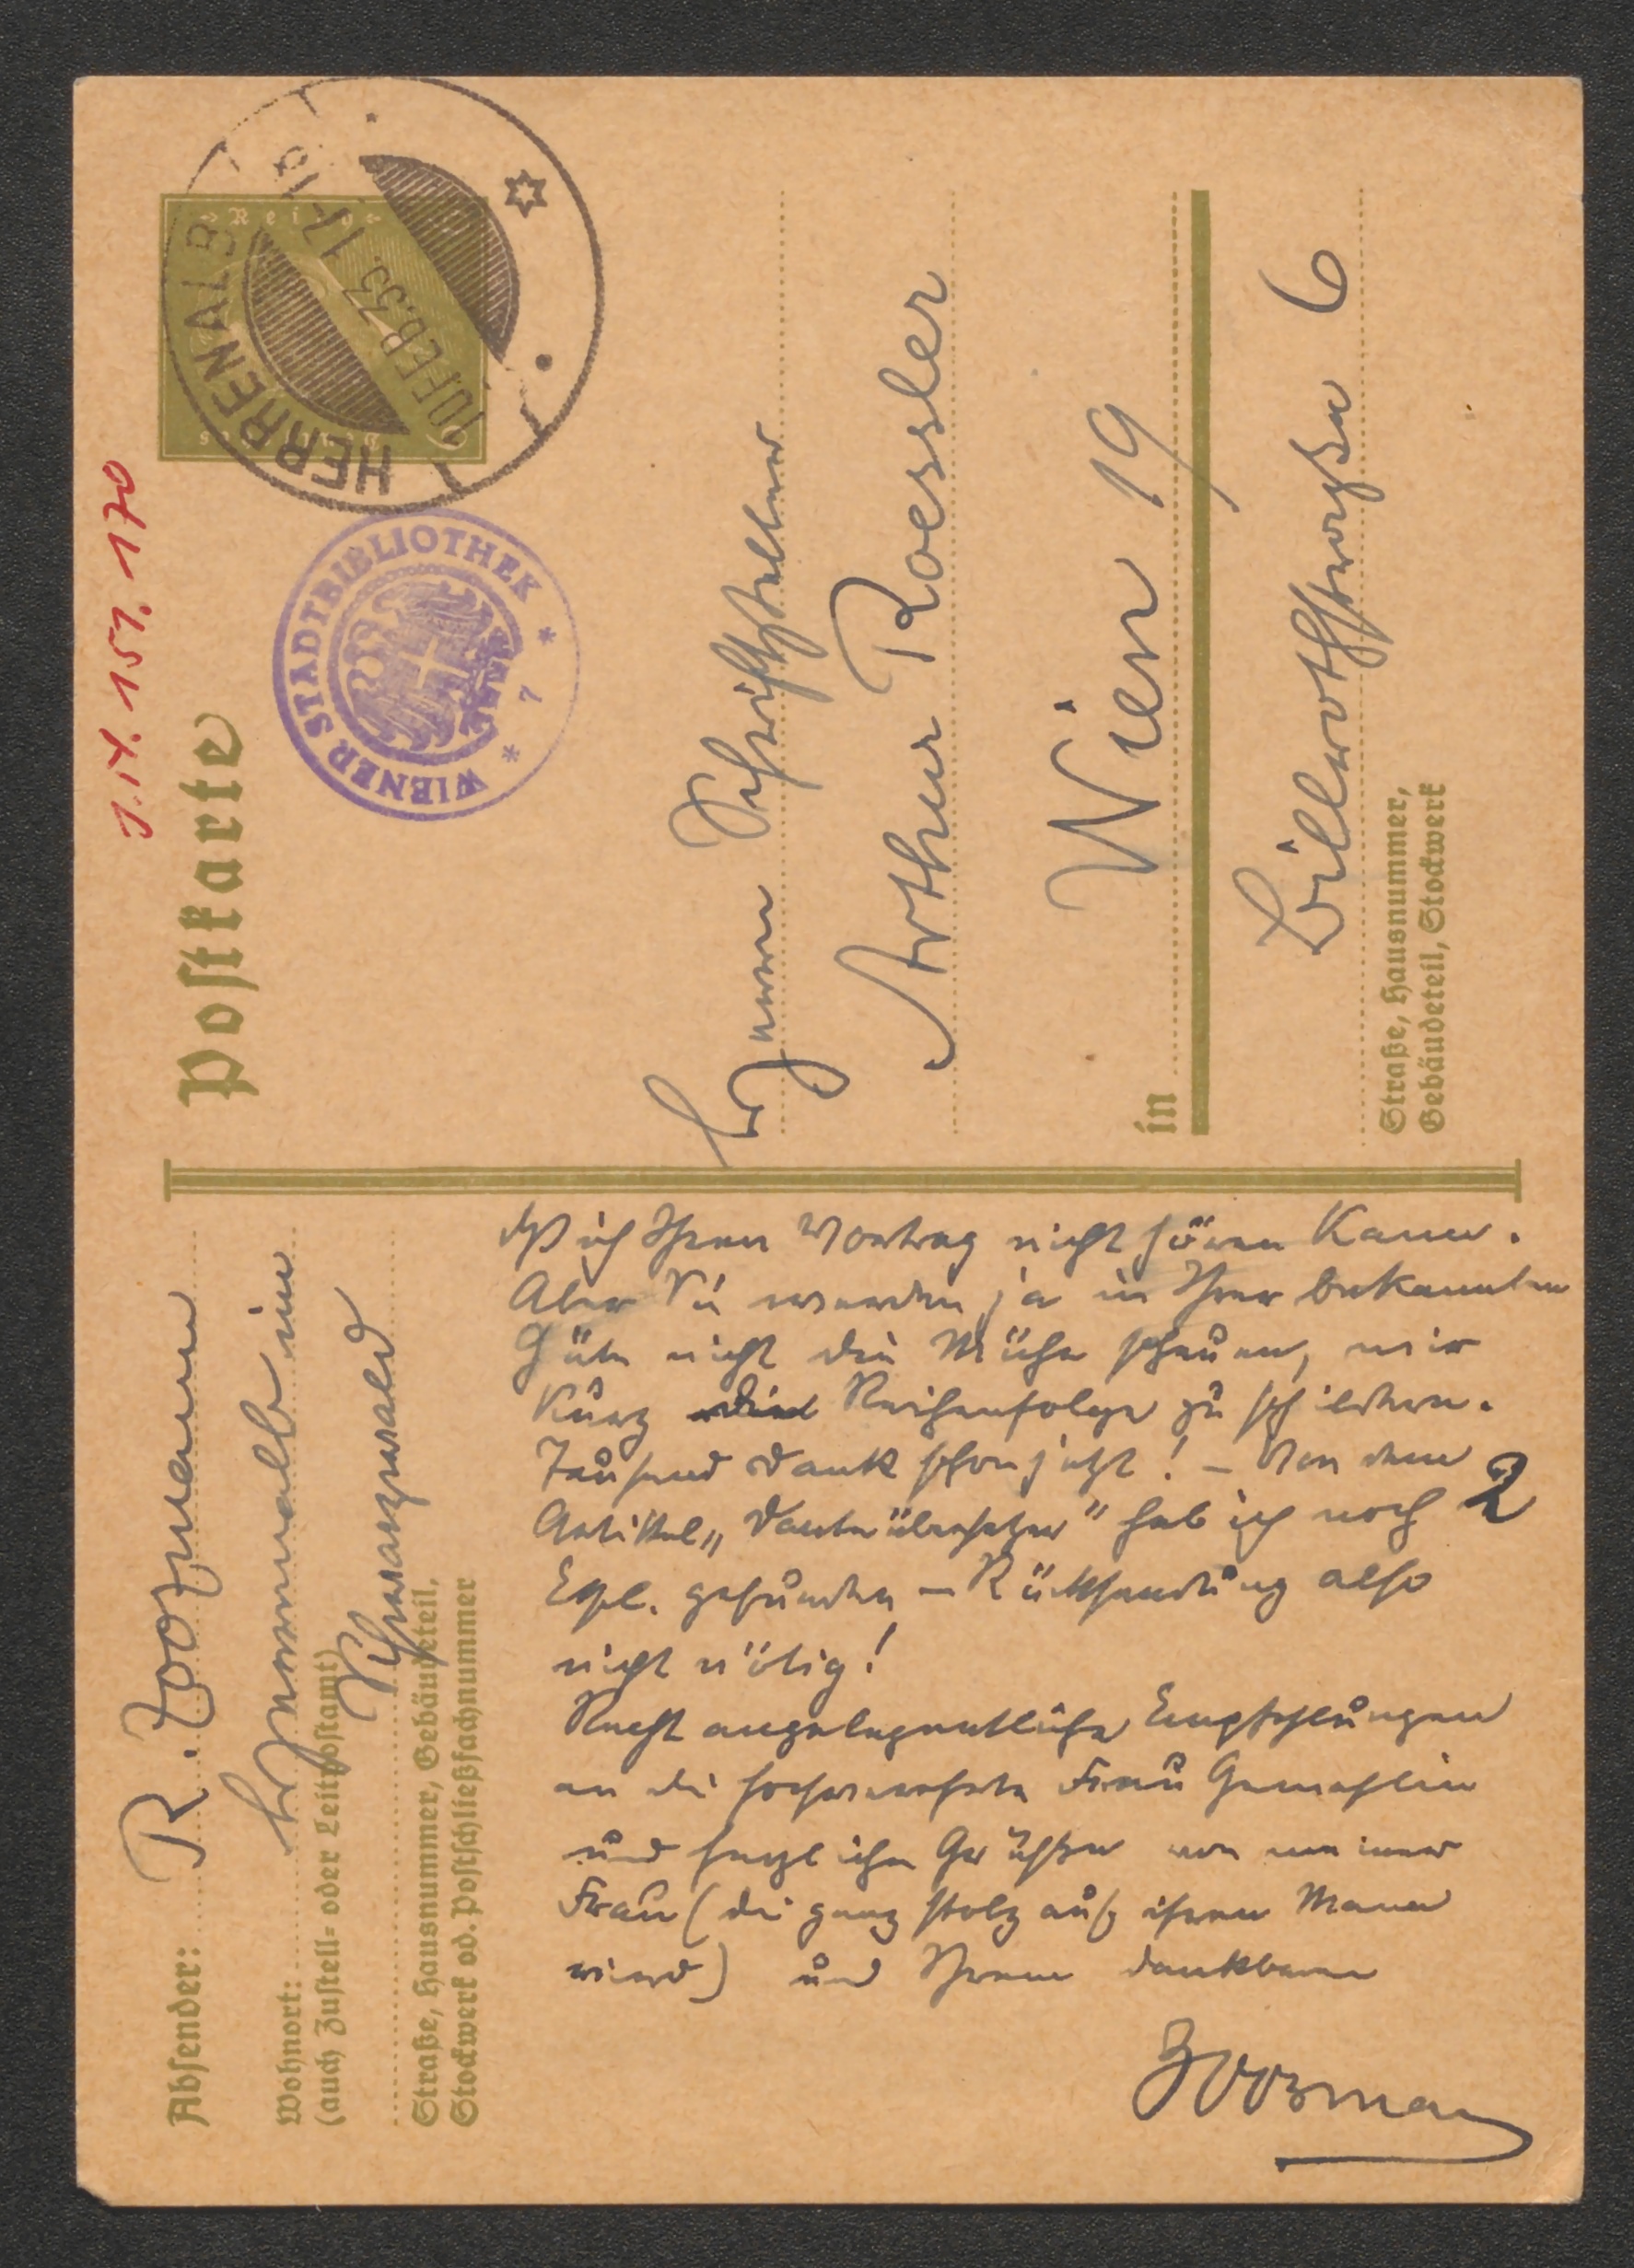 J.N. 151.170
Postkarte
Reich
HERRENALB
10.FEB.33.17-18
WIENER STADTBIBLIOTHEK
* 7 *
Herrn Schriftsteller
Arthur Roessler
in Wien 19
Billrothstraße 6
Straße, Hausnummer,
Gebäudeteil, Stockwerk
Absender: R. Zoozmann
Wohnort: Herrenalb im
(auch Zustell= oder Leitpostamt)
Schwarzwald
Straße, Hausnummer, Gebäudeteil,
Stockwerk od. Postschließfachnummer
daß ich Ihren Vortrag nicht hören kann.
Aber Sie werden ja in Ihrer bekannten
Güte nicht die Mühe scheuen, mir
kurz die Reihenfolge zu schildern.
Tausend Dank schon jetzt! – Von dem
Artikel „Danteübersetzer" hab ich noch 2
Expl. gefunden – Rücksendung also
nicht nötig!
Recht angelegentliche Empfehlungen
an die hochverehrte Frau Gemahlin
und herzliche Grüße von meiner
Frau (die ganz stolz auf ihren Mann
wird) und Ihrem dankbaren
Zoozmann